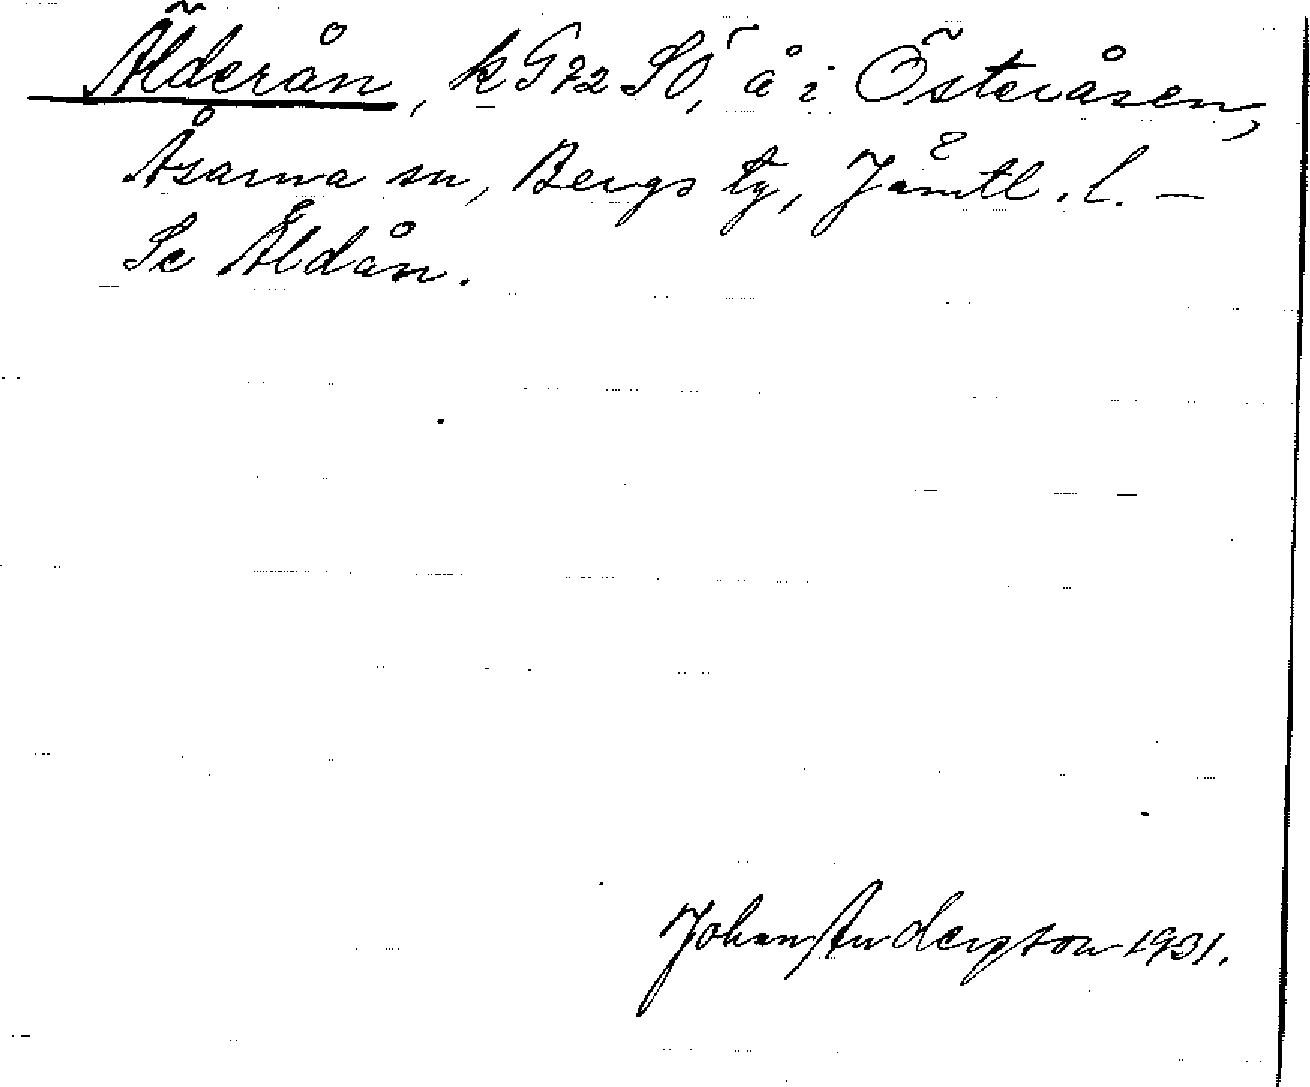 Älderån, k G72 SO, å i Österåsen,
Åsarna sn, Bergs tg, Jämtl. l. –
Se Äldån.
Johan Anderson 1931.